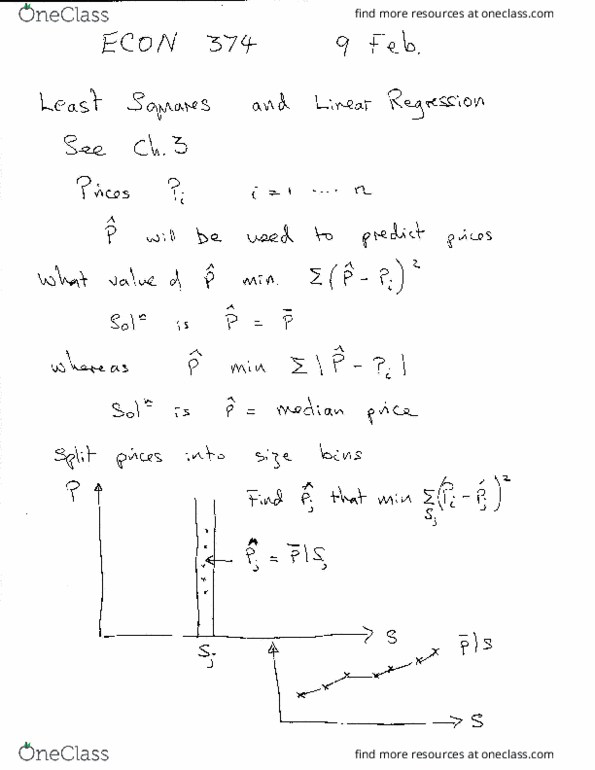 OneClass
find more resources at oneclass.com
ECON 374 9 Feb.
Least Squares and Linear Regression
See Ch. 3
Prices Pᵢ i = 1 .... n
P̂ will be used to predict prices
What value of P̂ min. Σ(P̂ - Pᵢ)²
Solⁿ is P̂ = P̄
whereas P̂ min Σ|P̂ - Pᵢ|
Solⁿ is P̂ = median price
Split prices into size bins
P
Find P̂ⱼ that min Σ(Pᵢ - P̂ⱼ)²
Sⱼ
P̂ⱼ = P̄|Sⱼ
S
Sⱼ
P̄|S
S
OneClass
find more resources at oneclass.com